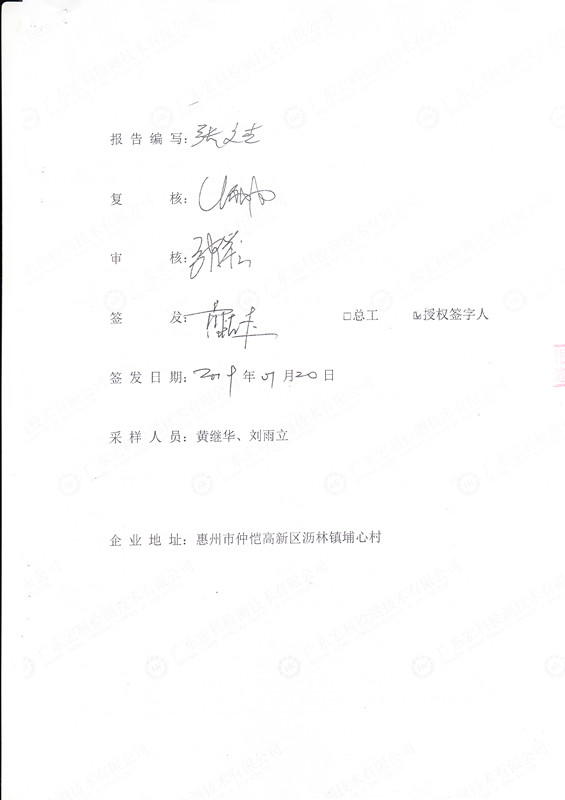 报告编写：张文杰
复核：
审核：
签发： □总工 ☑授权签字人
签发日期：2019年01月20日
采样人员：黄继华、刘雨立
企业地址：惠州市仲恺高新区沥林镇埔心村